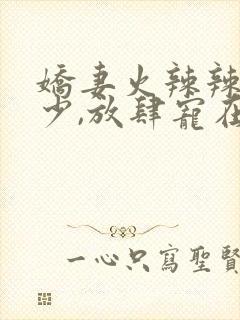 嬌妻火辣辣
少,放肆寵在
一心只寫聖賢